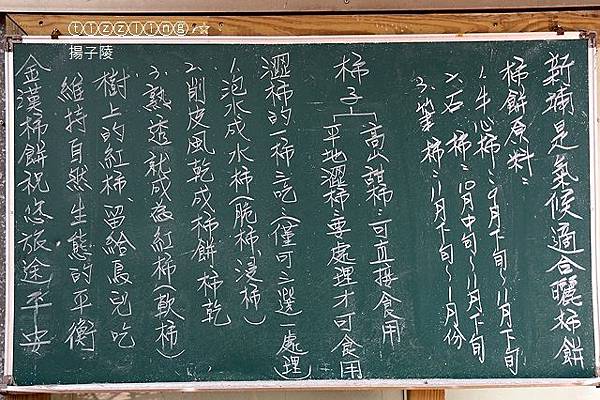 tizzling,☆
揚子陵
新埔是氣候適合曬柿餅
柿餅原料:
1.牛心柿:9月下旬~11月下旬
2.石柿:10月中旬~11月下旬
3.筆柿:11月下旬~1月份
柿子
高山甜柿:可直接食用
平地澀柿:要處理才可食用
澀柿的一柿三吃(僅可三選一處理)
1.泡水成水柿(脆柿、浸柿)
2.削皮風乾成柿餅、柿乾
3.熟透就成為紅柿(軟柿)
樹上的紅柿,留給鳥兒吃
維持自然生態的平衡
金漢柿餅祝您旅途平安